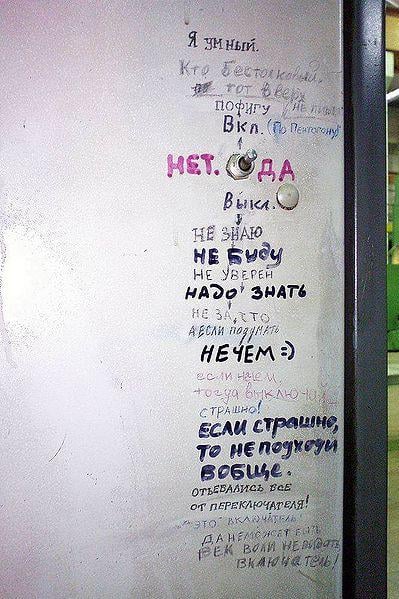 Я умный.
Кто Бестолковый.
тот вверх
ПОФИГУ НЕ ПИШИ
Вкл. (По Пентагону)
НЕТ. ДА
Выкл.
НЕ ЗНАЮ
НЕ БУДУ
НЕ УВЕРЕН
НАДО ЗНАТЬ
НЕ ЗА ЧТО
А ЕСЛИ ПОДУМАТЬ
НЕЧЕМ =)
если нечем
тогда выключай
СТРАШНО!
ЕСЛИ СТРАШНО,
ТО НЕ ПОДХОДИ
ВОБЩЕ.
ОТЪЕБАЛИСЬ ВСЕ
ОТ ПЕРЕКЛЮЧАТЕЛЯ!
"ЭТО" ВКЛЮЧАТЕЛЬ
ДА НЕМОЖЕТ БЫТЬ
ВЕК ВОЛИ НЕВИДАТЬ
ВКЛЮЧАТЕЛЬ!